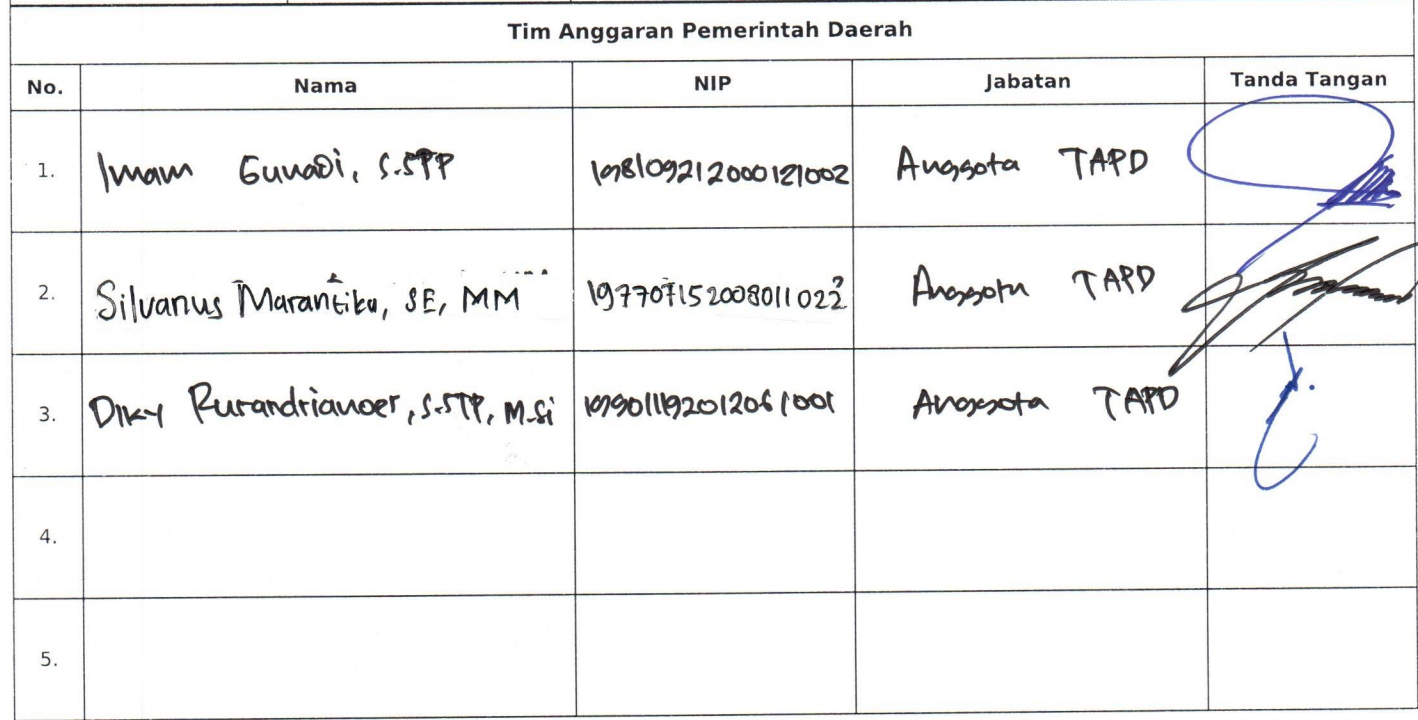 Tim Anggaran Pemerintah Daerah
No. Nama NIP Jabatan Tanda Tangan
1. Imam Gunadi, S.STP 198109212000121002 Anggota TAPD
2. Silvanus Marantika, SE, MM 197707152008011022 Anggota TAPD
3. Diky Rurandrianoer, S.STP, M.Si 199011192012061001 Anggota TAPD
4.
5.